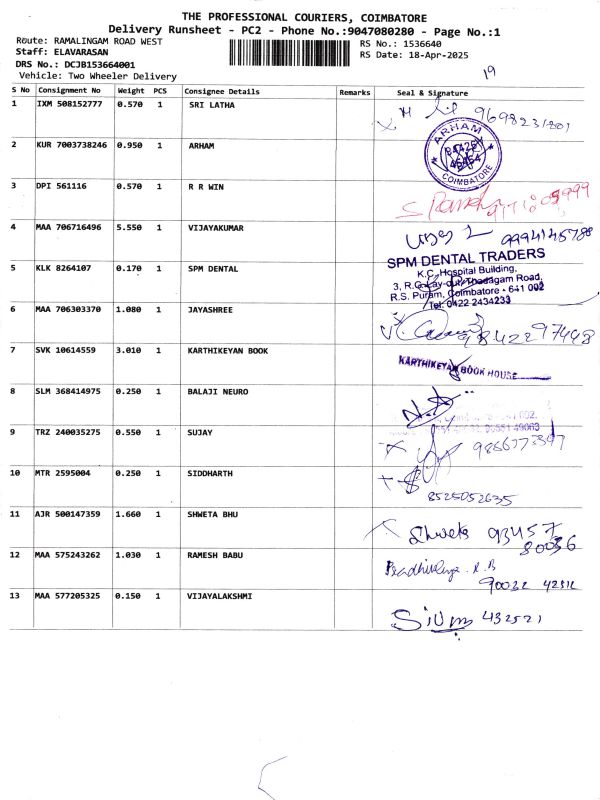 THE PROFESSIONAL COURIERS, COIMBATORE
Delivery Runsheet - PC2 - Phone No.:9047080280 - Page No.:1
Route: RAMALINGAM ROAD WEST
RS No.: 1536640
Staff: ELAVARASAN
RS Date: 18-Apr-2025
DRS No.: DCJB153664001
Vehicle: Two Wheeler Delivery
19
S No Consignment No Weight PCS Consignee Details Remarks Seal & Signature
1 IXM 508152777 0.570 1 SRI LATHA 9698231801
2 KUR 7003738246 0.950 1 ARHAM
ARHAM
COIMBATORE
3 DPI 561116 0.570 1 R R WIN
4 MAA 706716496 5.550 1 VIJAYAKUMAR
5 KLK 8264107 0.170 1 SPM DENTAL
SPM DENTAL TRADERS
K.C. Hospital Building,
3, R.G. Lay-out, Thadagam Road,
R.S. Puram, Coimbatore - 641 002
Tel: 0422 2434233
6 MAA 706303370 1.080 1 JAYASHREE 9842297448
7 SVK 10614559 3.010 1 KARTHIKEYAN BOOK
KARTHIKEYAN BOOK HOUSE
8 SLM 368414975 0.250 1 BALAJI NEURO
9 TRZ 240035275 0.550 1 SUJAY
10 MTR 2595004 0.250 1 SIDDHARTH
8525052635
11 AJR 500147359 1.660 1 SHWETA BHU Shweta 93457
80036
12 MAA 575243262 1.030 1 RAMESH BABU
90032 42312
13 MAA 577205325 0.150 1 VIJAYALAKSHMI
432521